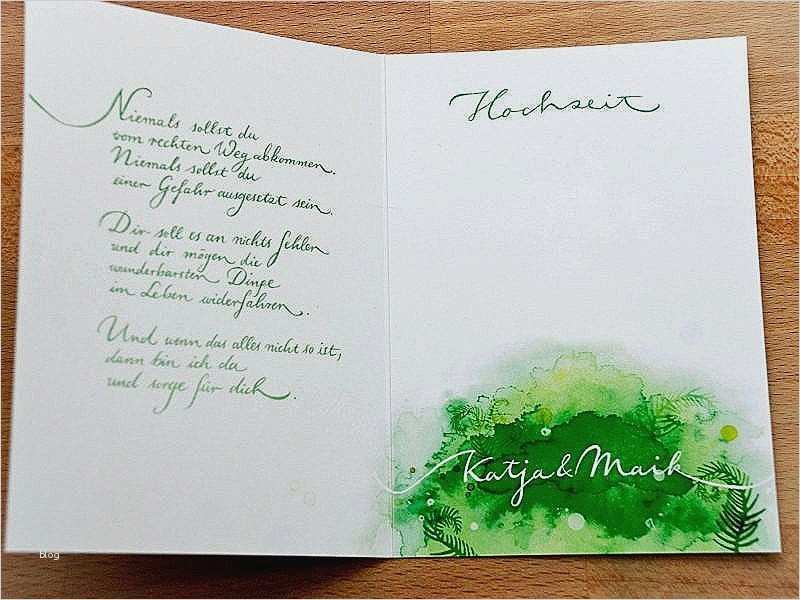 Niemals sollst du
vom rechten Weg abkommen.
Niemals sollst du
einer Gefahr ausgesetzt sein.
Dir soll es an nichts fehlen
und dir mögen die
wunderbarsten Dinge
im Leben widerfahren.
Und wenn das alles nicht so ist,
dann bin ich da
und sorge für dich.
Hochzeit
Katja & Maik
blog